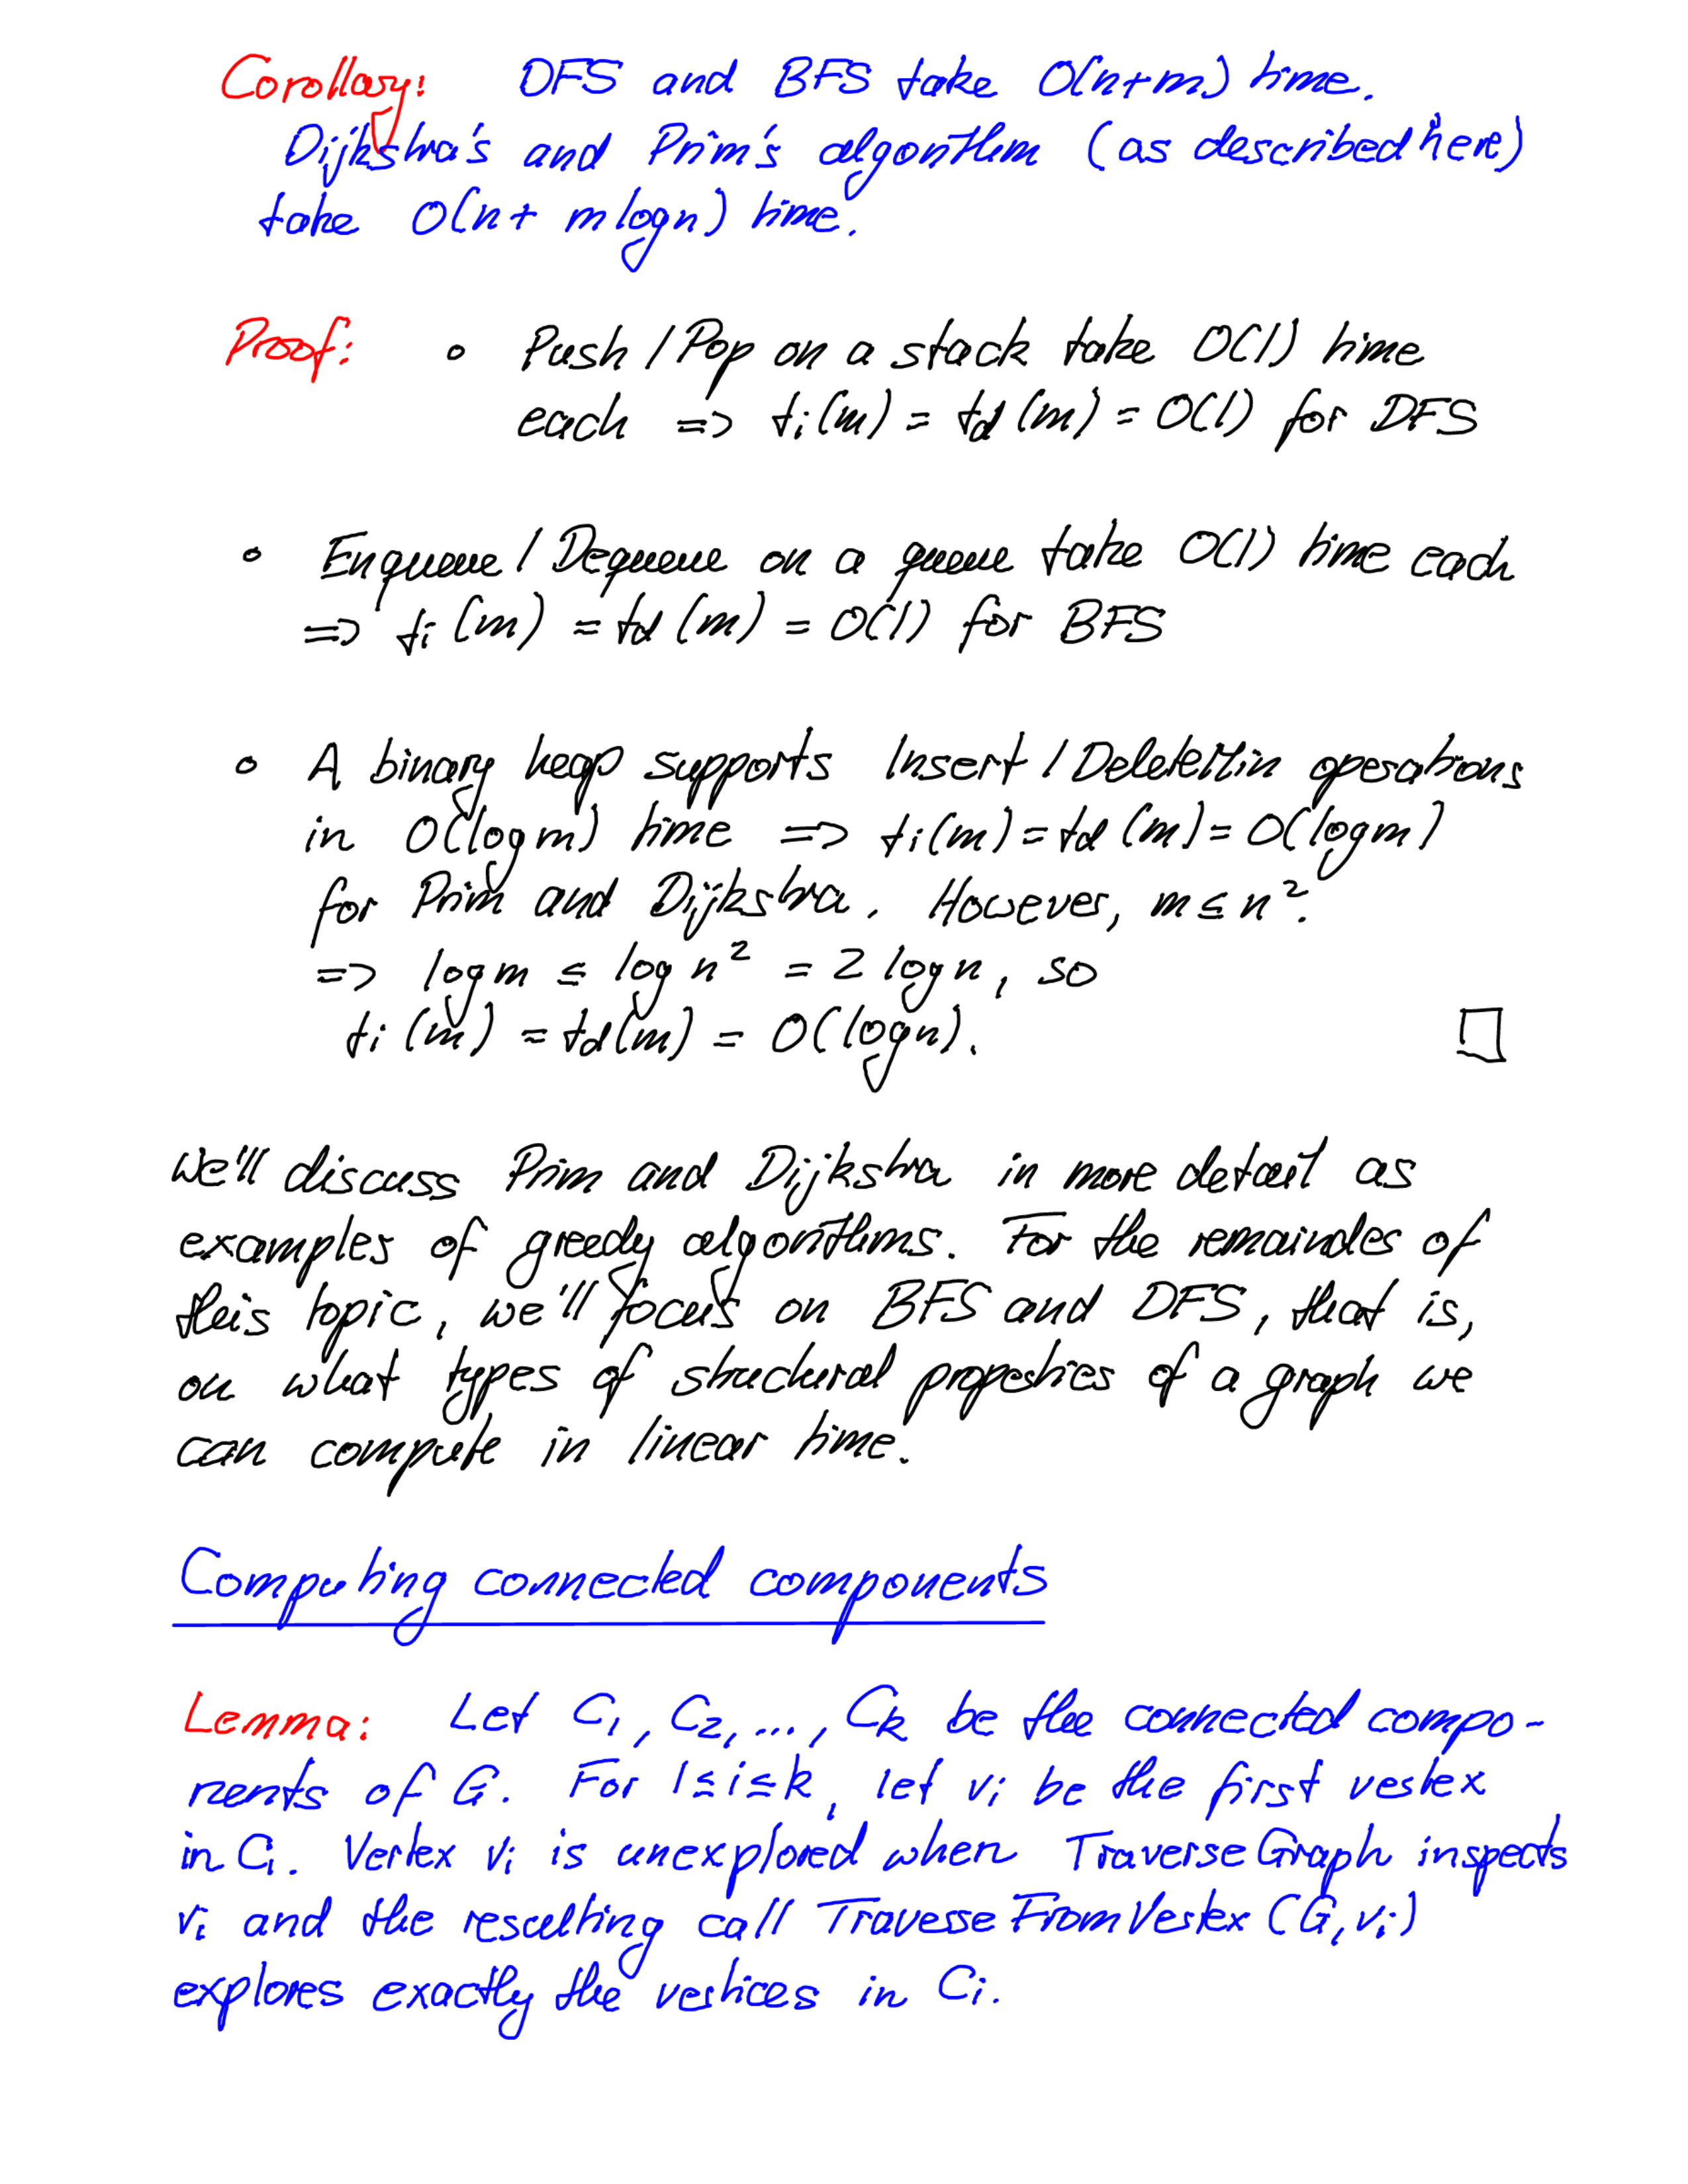 Corollary: DFS and BFS take O(n+m) time.
Dijkstra's and Prim's algorithm (as described here)
take O(n + m log n) time.
Proof: • Push / Pop on a stack take O(1) time
each => ti(m) = td(m) = O(1) for DFS
• Enqueue / Dequeue on a queue take O(1) time each
=> ti(m) = td(m) = O(1) for BFS
• A binary heap supports Insert / DeleteMin operations
in O(log m) time => ti(m) = td(m) = O(log m)
for Prim and Dijkstra. However, m ≤ n².
=> log m ≤ log n² = 2 log n, so
ti(m) = td(m) = O(log n). □
We'll discuss Prim and Dijkstra in more detail as
examples of greedy algorithms. For the remainder of
this topic, we'll focus on BFS and DFS, that is,
on what types of structural properties of a graph we
can compute in linear time.
Computing connected components
Lemma: Let C₁, C₂, ..., Ck be the connected compo-
nents of G. For 1 ≤ i ≤ k, let vi be the first vertex
in Ci. Vertex vi is unexplored when TraverseGraph inspects
vi and the resulting call TraverseFromVertex (G, vi)
explores exactly the vertices in Ci.